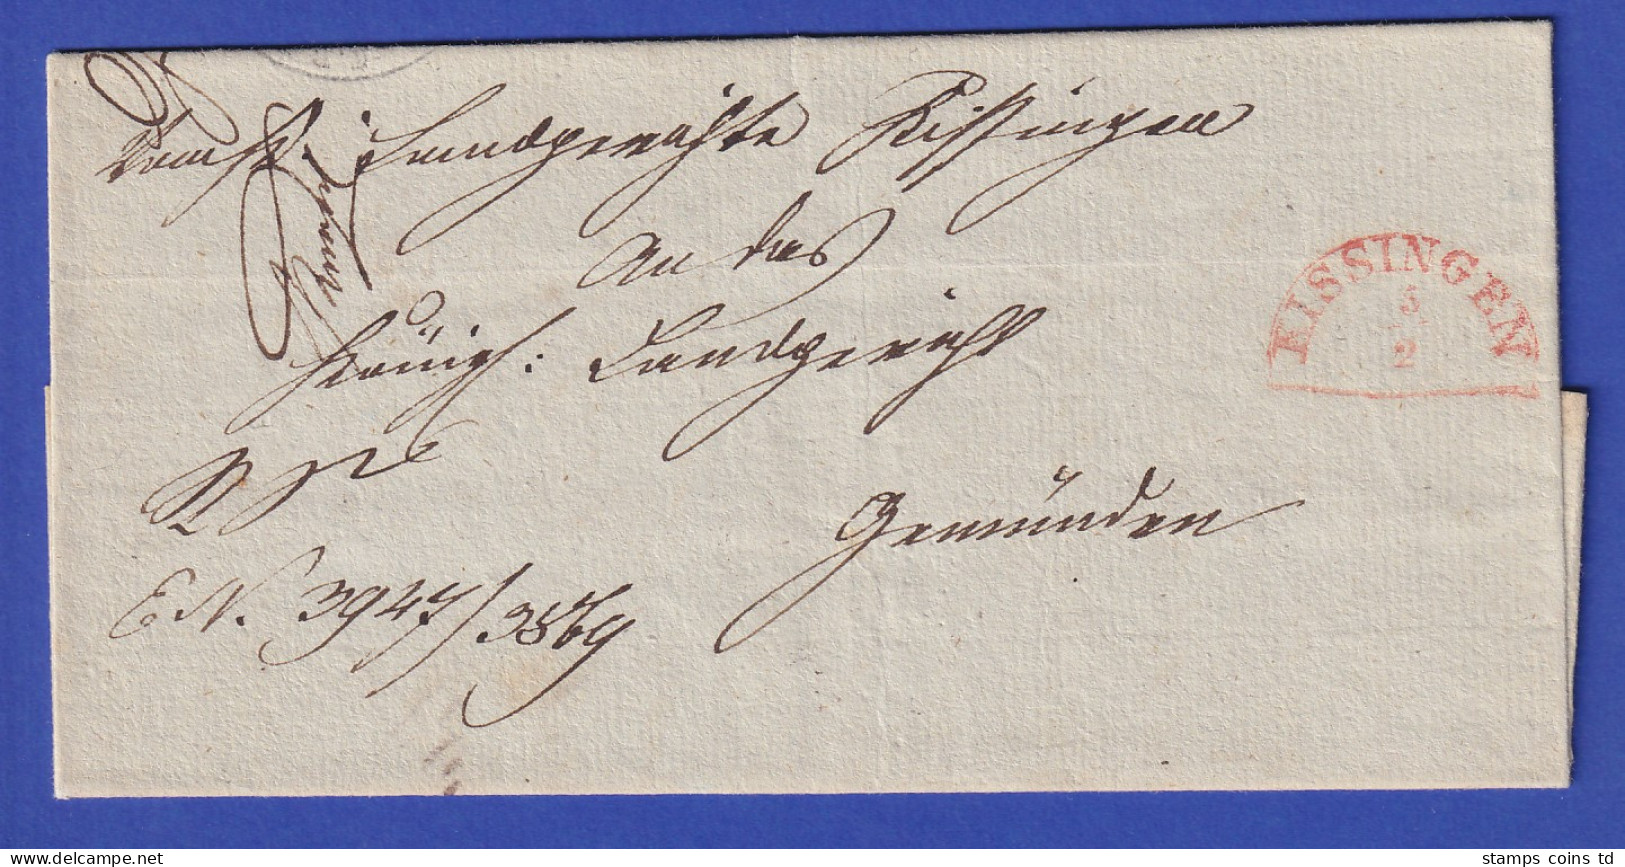 Vom K. Landgerichte Kissingen
An das
Königl: Landgericht
Gemünden
E. N. 3947/3869
KISSINGEN
5
2
delcampe.net
stamps coins td